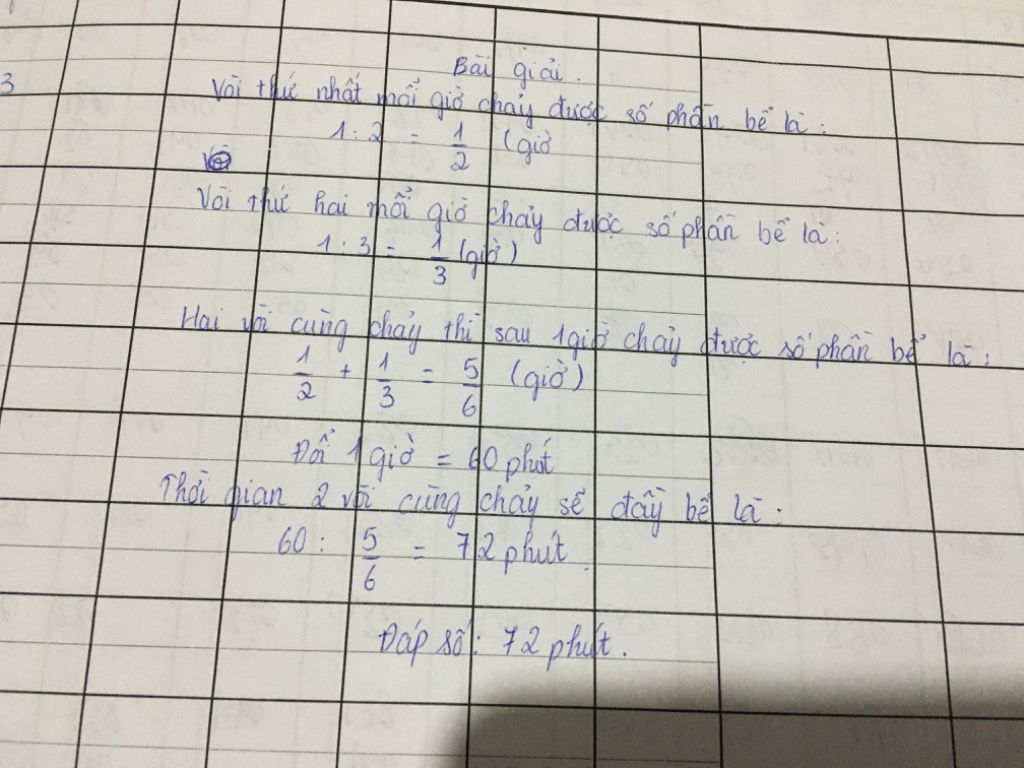 Bài giải.
3
Vòi thứ nhất mỗi giờ chảy được số phần bể là:
1 : 2 = 1/2 (giờ
Vòi thứ hai mỗi giờ chảy được số phần bể là:
1 : 3 = 1/3 (giờ)
Hai vòi cùng chảy thì sau 1 giờ chảy được số phần bể là:
1/2 + 1/3 = 5/6 (giờ)
Đổi 1 giờ = 60 phút
Thời gian 2 vòi cùng chảy sẽ đầy bể là:
60 : 5/6 = 72 phút.
Đáp số: 72 phút.